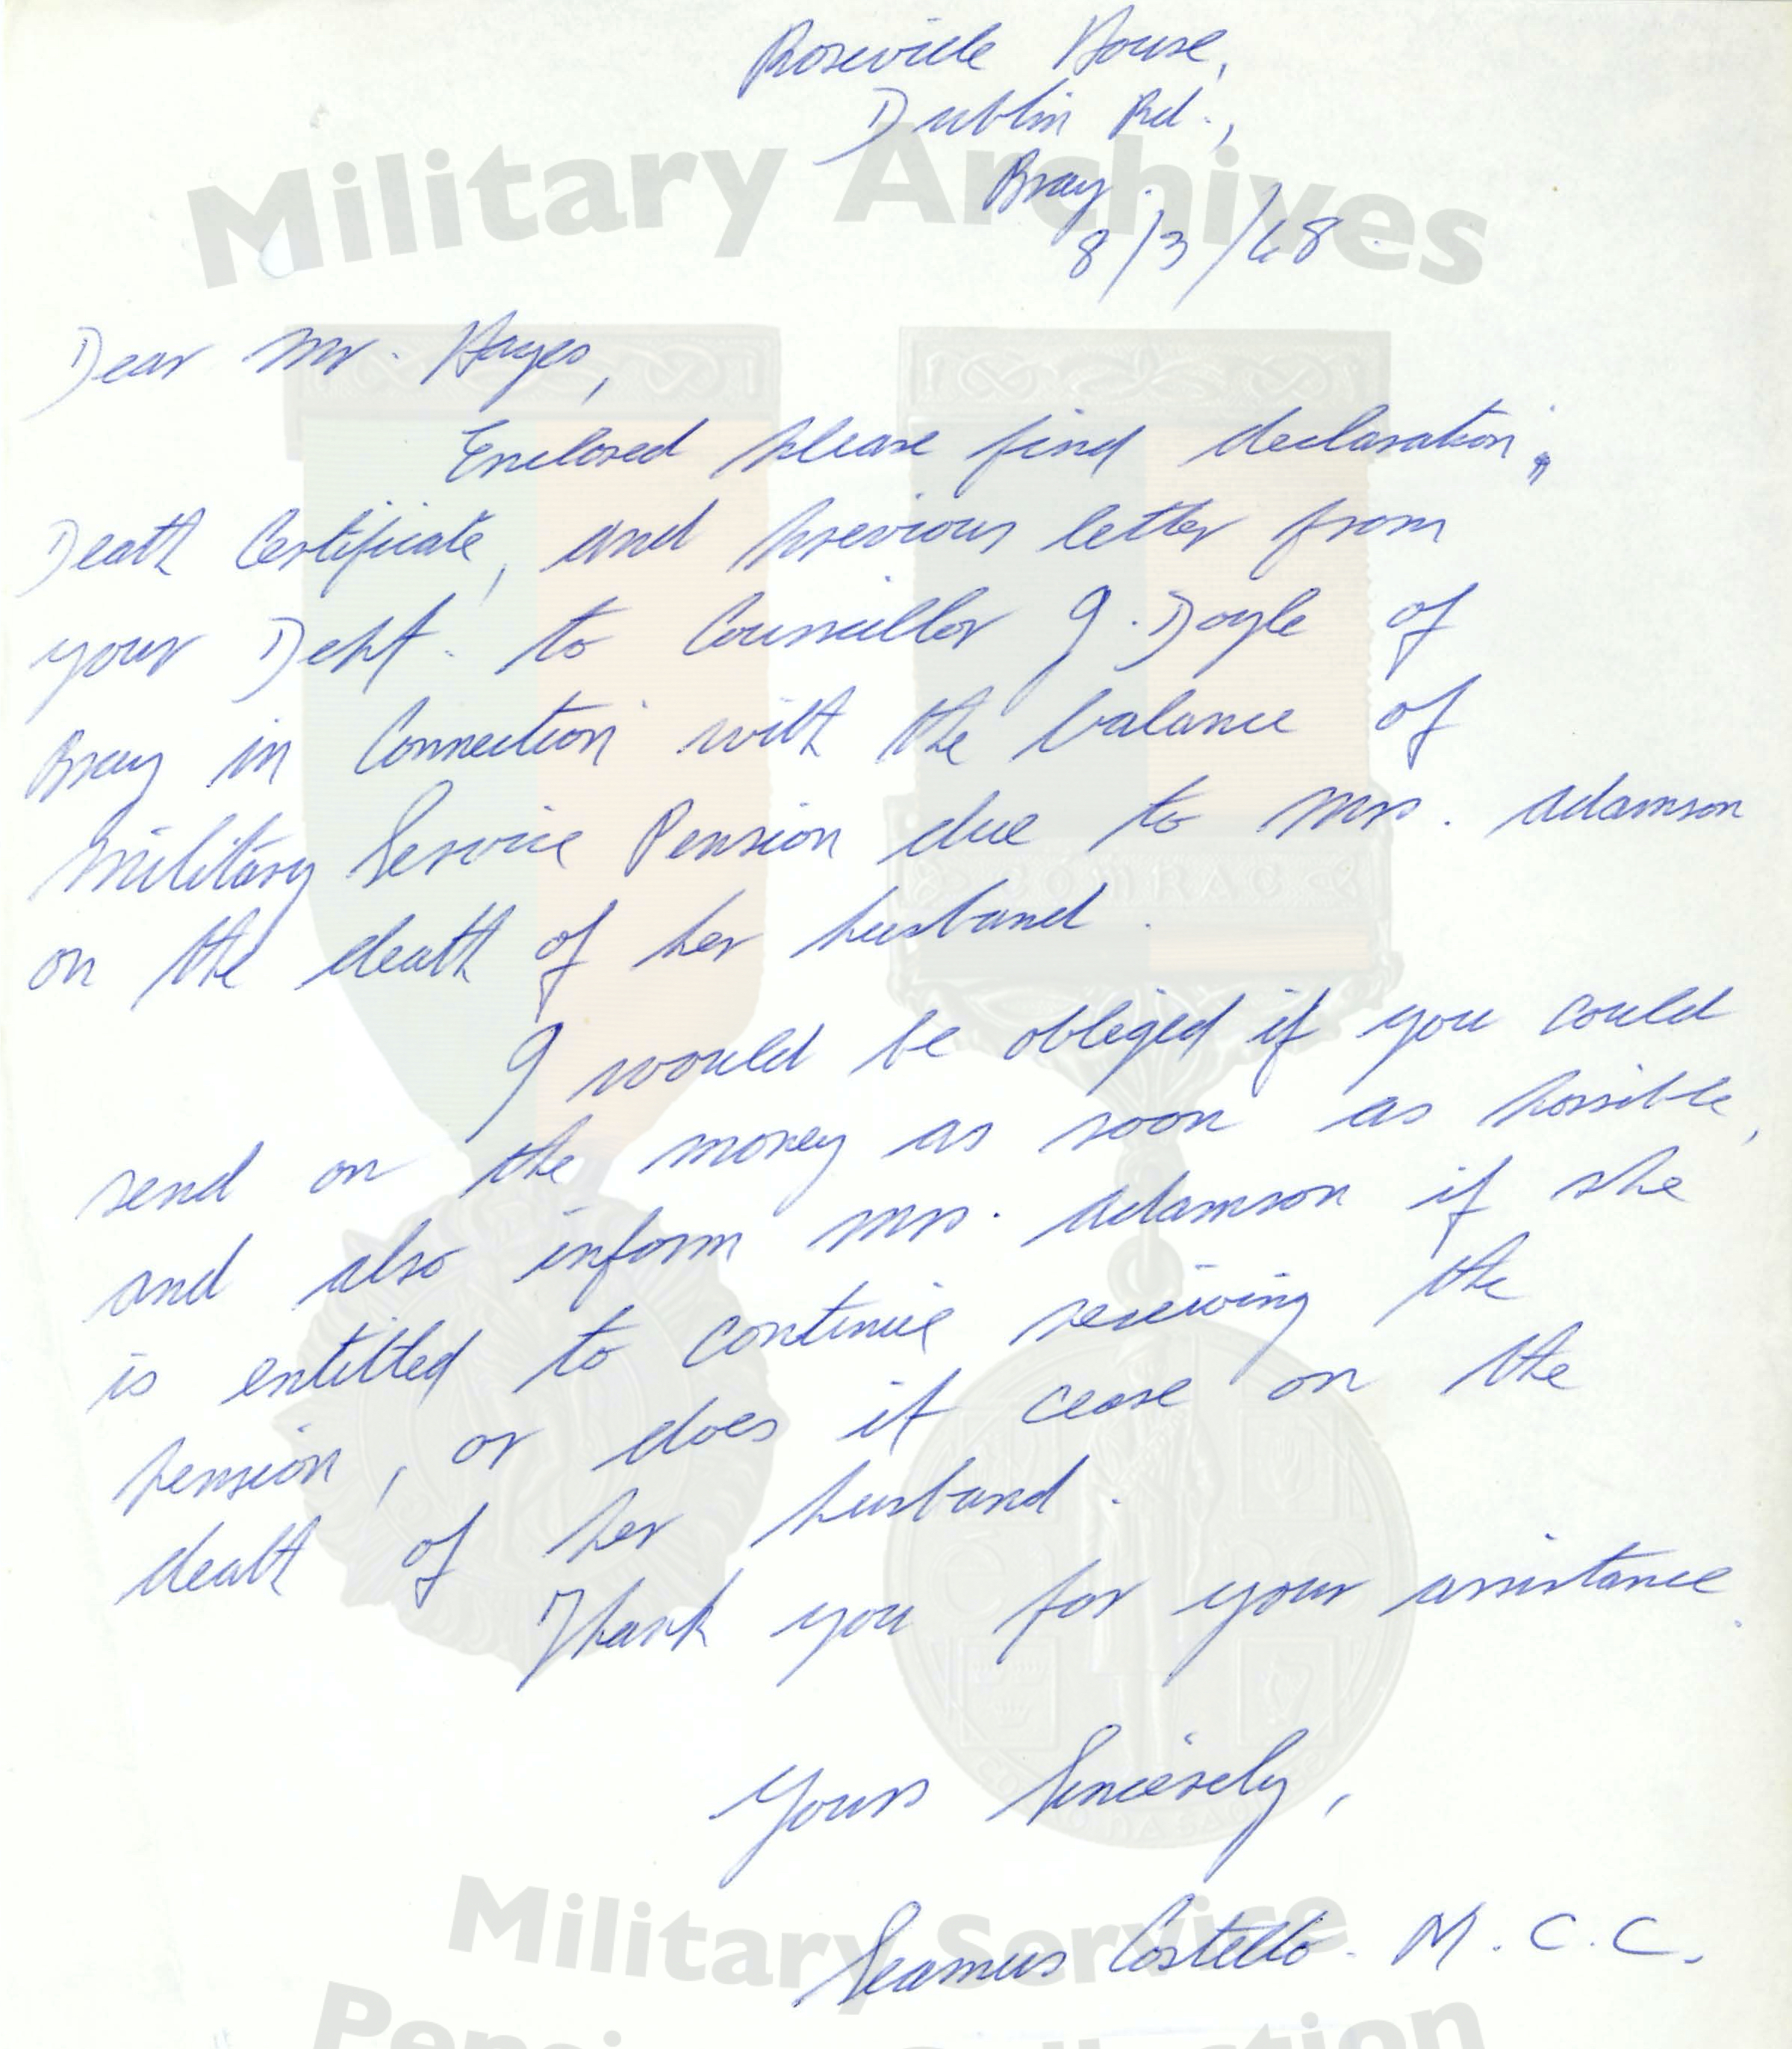 Roseville House,
Dublin Rd.,
Bray.
8/3/68.
Military Archives
Dear Mr. Hayes,
Enclosed please find declaration,
Death Certificate, and previous letter from
your Dept. to Councillor J. Doyle of
Bray in Connection with the balance of
Military Service Pension due to Mrs. Adamson
on the death of her husband.
I would be obliged if you could
send on the money as soon as possible,
and also inform Mrs. Adamson if she
is entitled to continue receiving the
pension, or does it cease on the
death of her husband.
Thank you for your assistance.
Yours Sincerely,
Seamus Costello. M.C.C.
COMRAC
Military Service